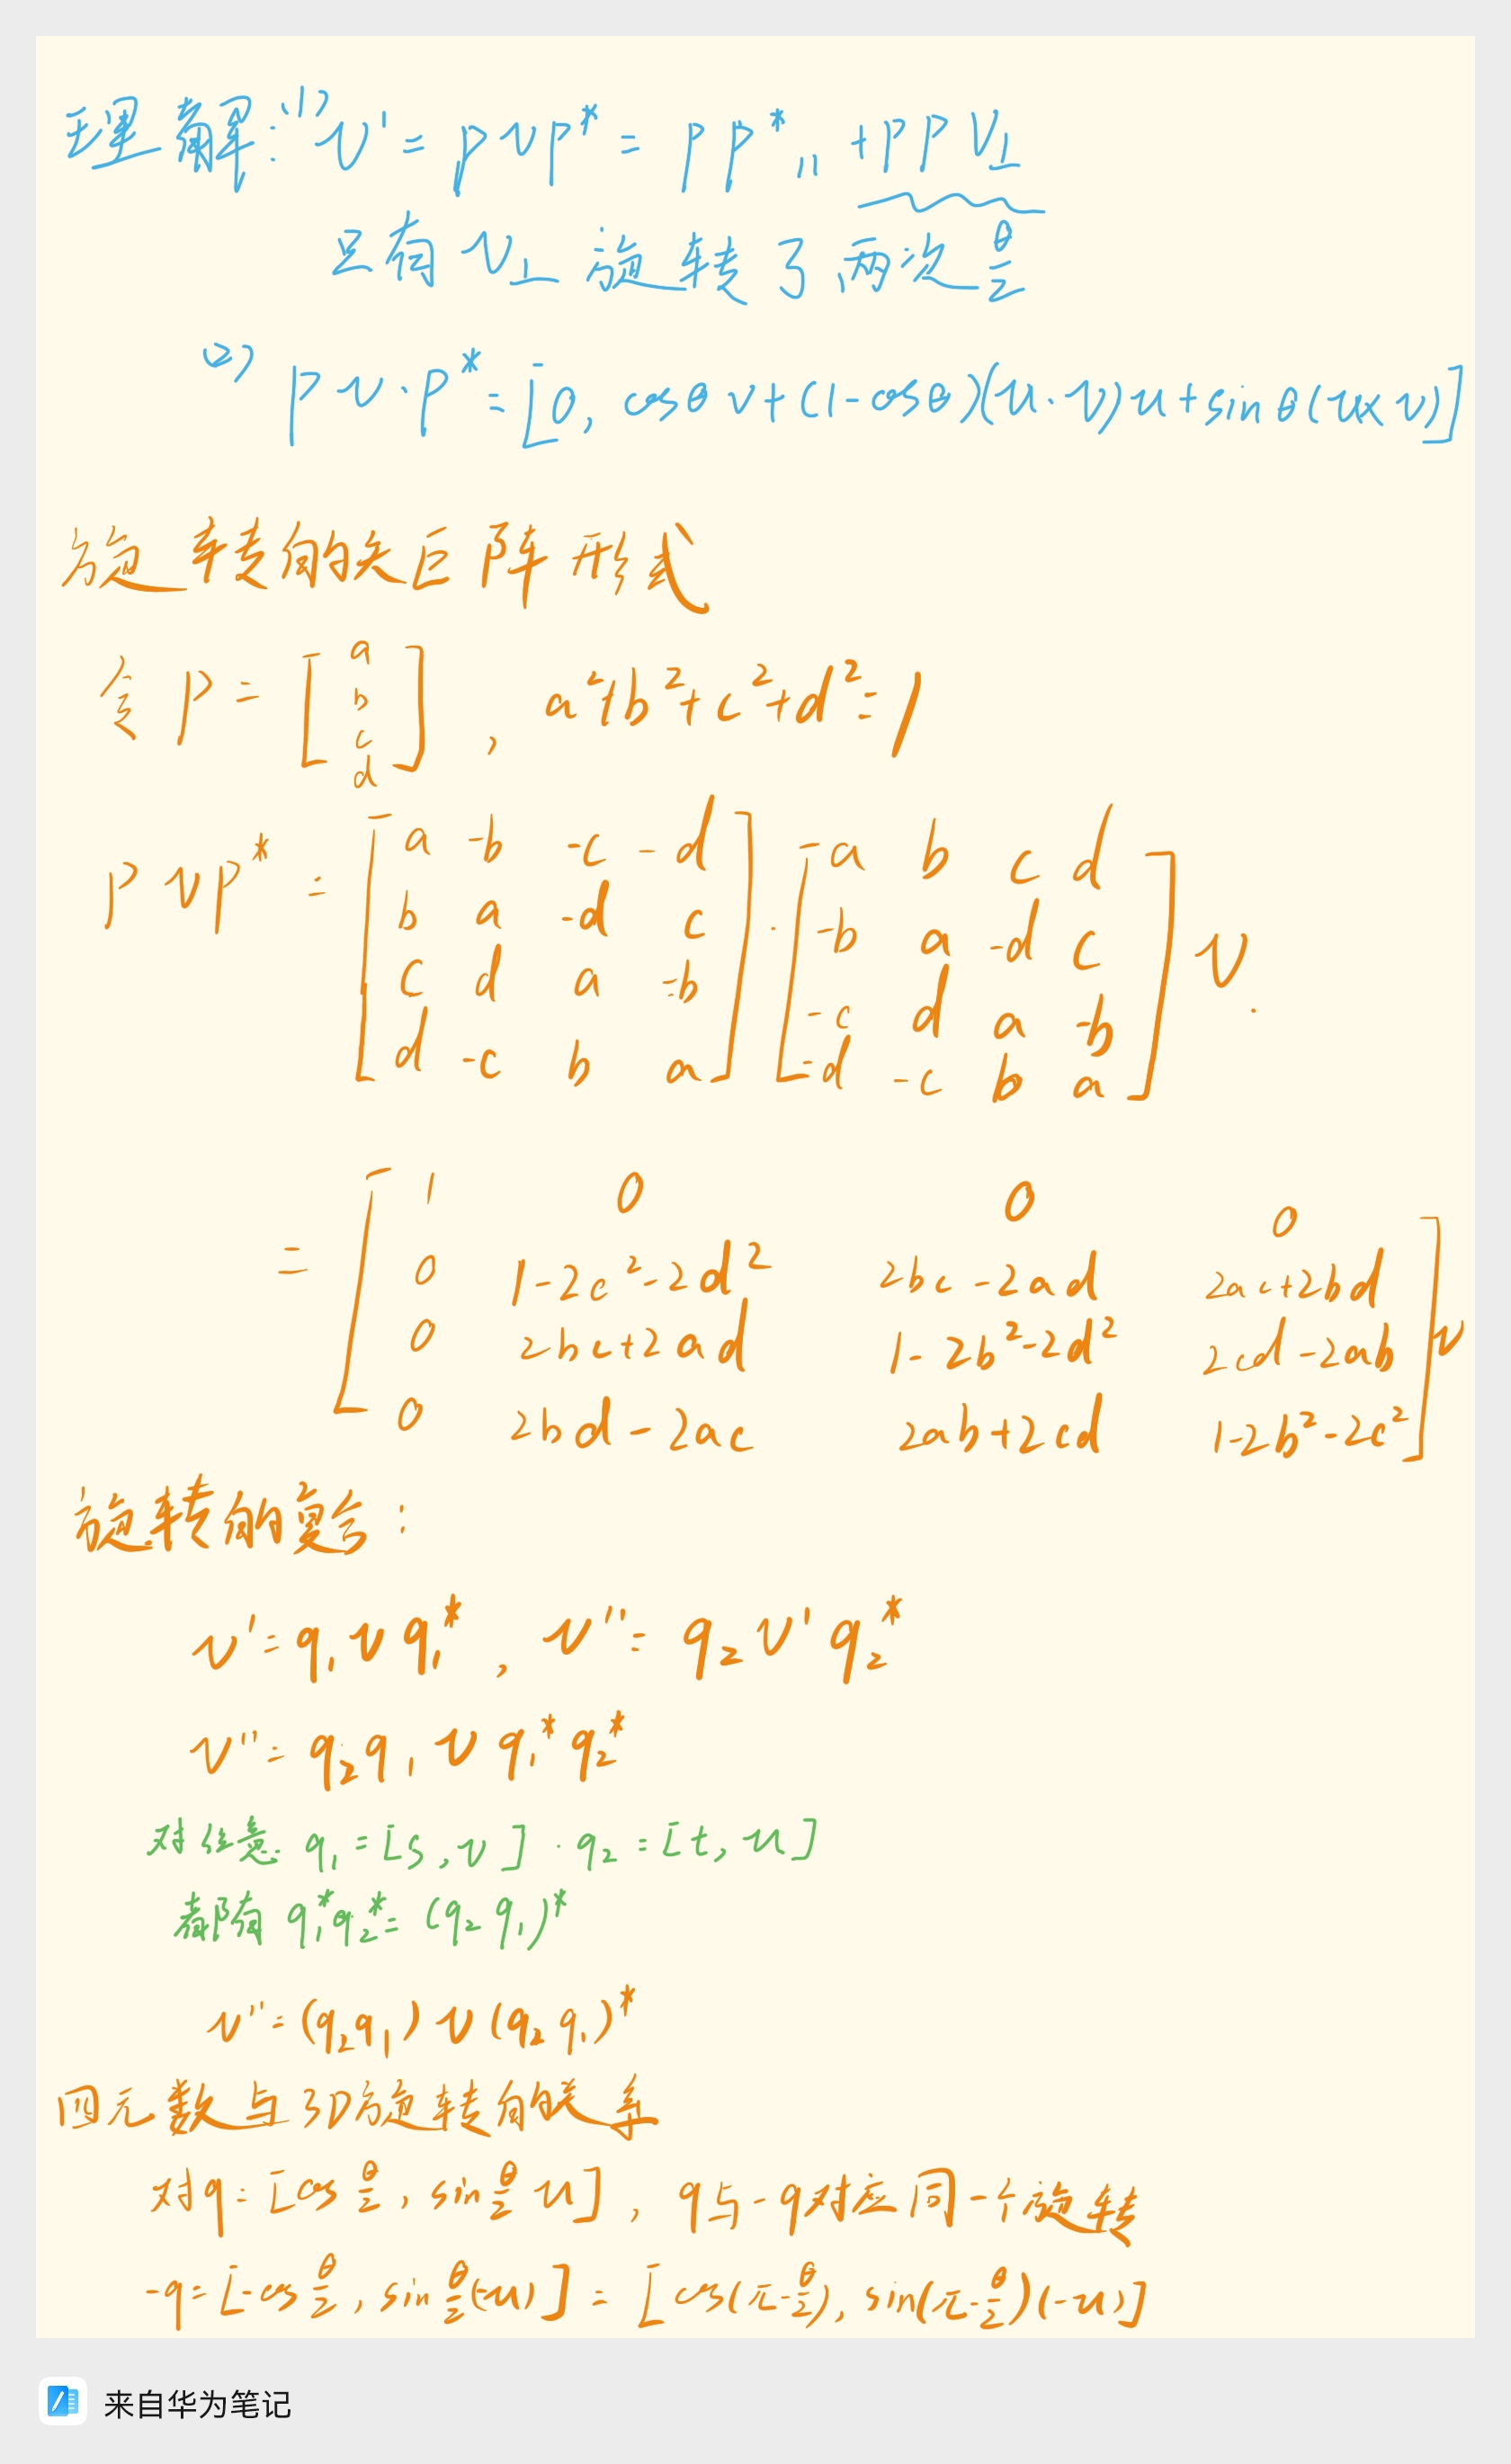 理解: (1) v' = pvp* = pp* ,, + ppv⊥
只有 v⊥ 旋转了两次 θ/2
(2) pv·p* = [0, cosθ v + (1-cosθ)(u·v)u + sinθ(u×v)]
旋转的矩阵形式
令 p = [a b c d] , a²+b²+c²+d²=1
pvp* = [a -b -c -d; b a -d c; c d a -b; d -c b a] · [a b c d; -b a -d c; -c d a -b; -d -c b a] v.
= [1 0 0 0; 0 1-2c²-2d² 2bc-2ad 2ac+2bd; 0 2bc+2ad 1-2b²-2d² 2cd-2ab; 0 2bd-2ac 2ab+2cd 1-2b²-2c²] v
旋转的复合:
v' = q₁vq₁* , v'' = q₂v'q₂*
v'' = q₂q₁vq₁*q₂*
对任意 q₁ = [s, v] · q₂ = [t, u]
都有 q₁*q₂* = (q₂q₁)*
v'' = (q₂q₁)v(q₂q₁)*
四元数与3D旋转的关系
对q = [cos θ/2, sin θ/2 u], q与-q对应同一个旋转
-q = [-cos θ/2, sin θ/2 (-u)] = [cos(π-θ/2), sin(π-θ/2)(-u)]
来自华为笔记